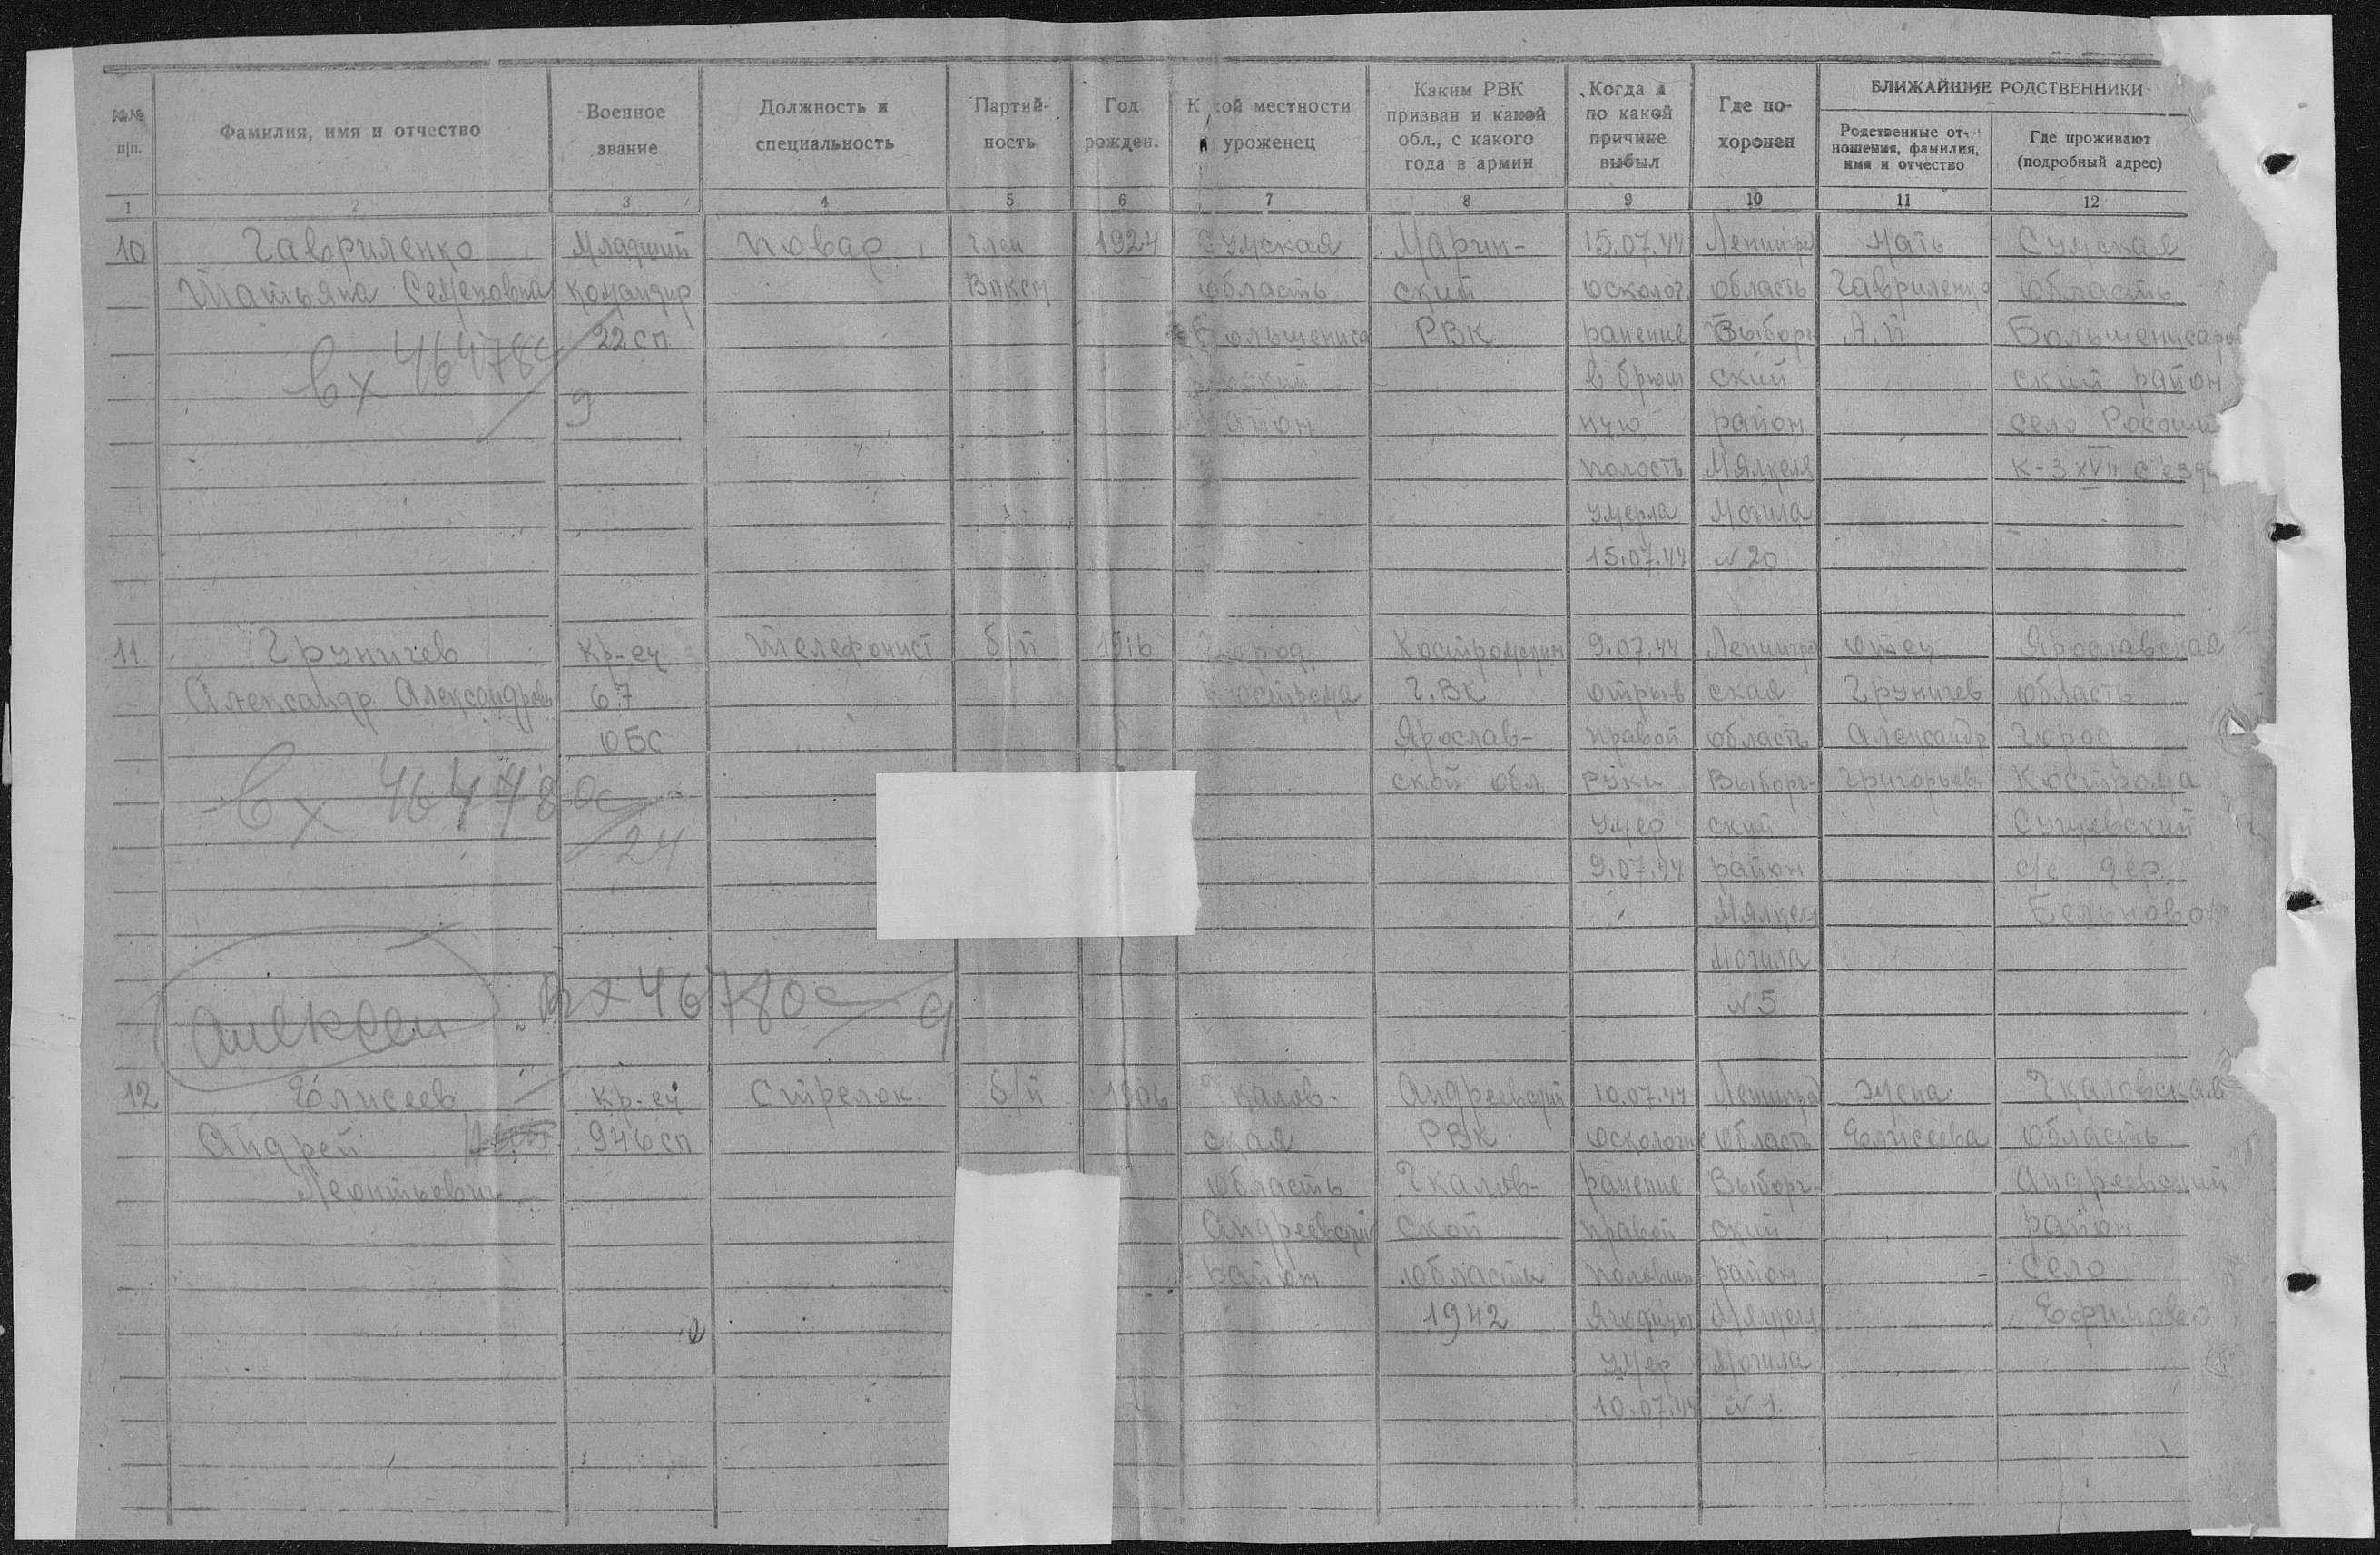 №№ п/п.
Фамилия, имя и отчество
Военное звание
Должность и специальность
Партий-
ность
Год рожден.
К кой местности
уроженец
Каким РВК
призван и какой
обл., с какого
года в армии
Когда и
по какой
причине
выбыл
Где по-
хоронен
БЛИЖАЙШИЕ РОДСТВЕННИКИ
Родственные от-
ношения, фамилия,
имя и отчество
Где проживают
(подробный адрес)
1 2 3 4 5 6 7 8 9 10 11 12
10
Гавриленко
Татьяна Семеновна
вх 46478с
9
Младший
командир
22 сп
повар
член
Влксм
1924
Сумская
область
Большеписа
ровский
район
Марин-
ский
РВК
15.07.44
осколоч.
ранение
в брюш
ную
полость
умерла
15.07.44
Ленингр
область
Выборг
ский
район
Мялкеля
Могила
№ 20
Мать
Гавриленко
А.П
Сумская
область
Большеписаров
ский район
село
К-3 XVII с'езда
11
Груничев
Александр Александрович
вх 464780с
24
Кр-ец
67
ОБС
Телефонист
б/п
1916
город
Кострома
Костромским
Г.ВК
Ярослав-
ской обл
9.07.44
отрыв
правой
руки
умер
9.07.44
Ленингра
ская
область
Выборг-
ский
район
Мялкеля
Могила
№ 5
отец
Груничев
Александр
Григорьев
Ярославская
область
город
Кострома
с/с дер.
Бельково
Алексеи
вх 46780с
9
12
Елисеев
Андрей
Леонтьевич
Кр-ец
946 сп
Стрелок
б/п
1906
калов-
ская
область
Андреевский
район
Андреевский
РВК
Чкалов-
ской
области
1942
10.07.44
осколочное
ранение
правой
половин
ягодицы
умер
10.07.44
Ленинград
область
Выборг-
ский
район
Мялкеля
Могила
№ 1.
жена
Елисеева
Чкаловская
область
Андреевский
район
село
Ефимовко